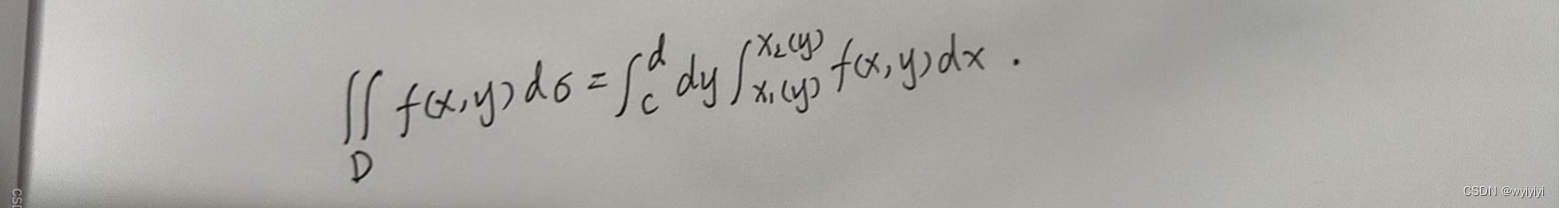 ∬_D f(x,y)dσ = ∫_c^d dy ∫_{x₁(y)}^{x₂(y)} f(x,y)dx .
CSDN @wyiyiyi